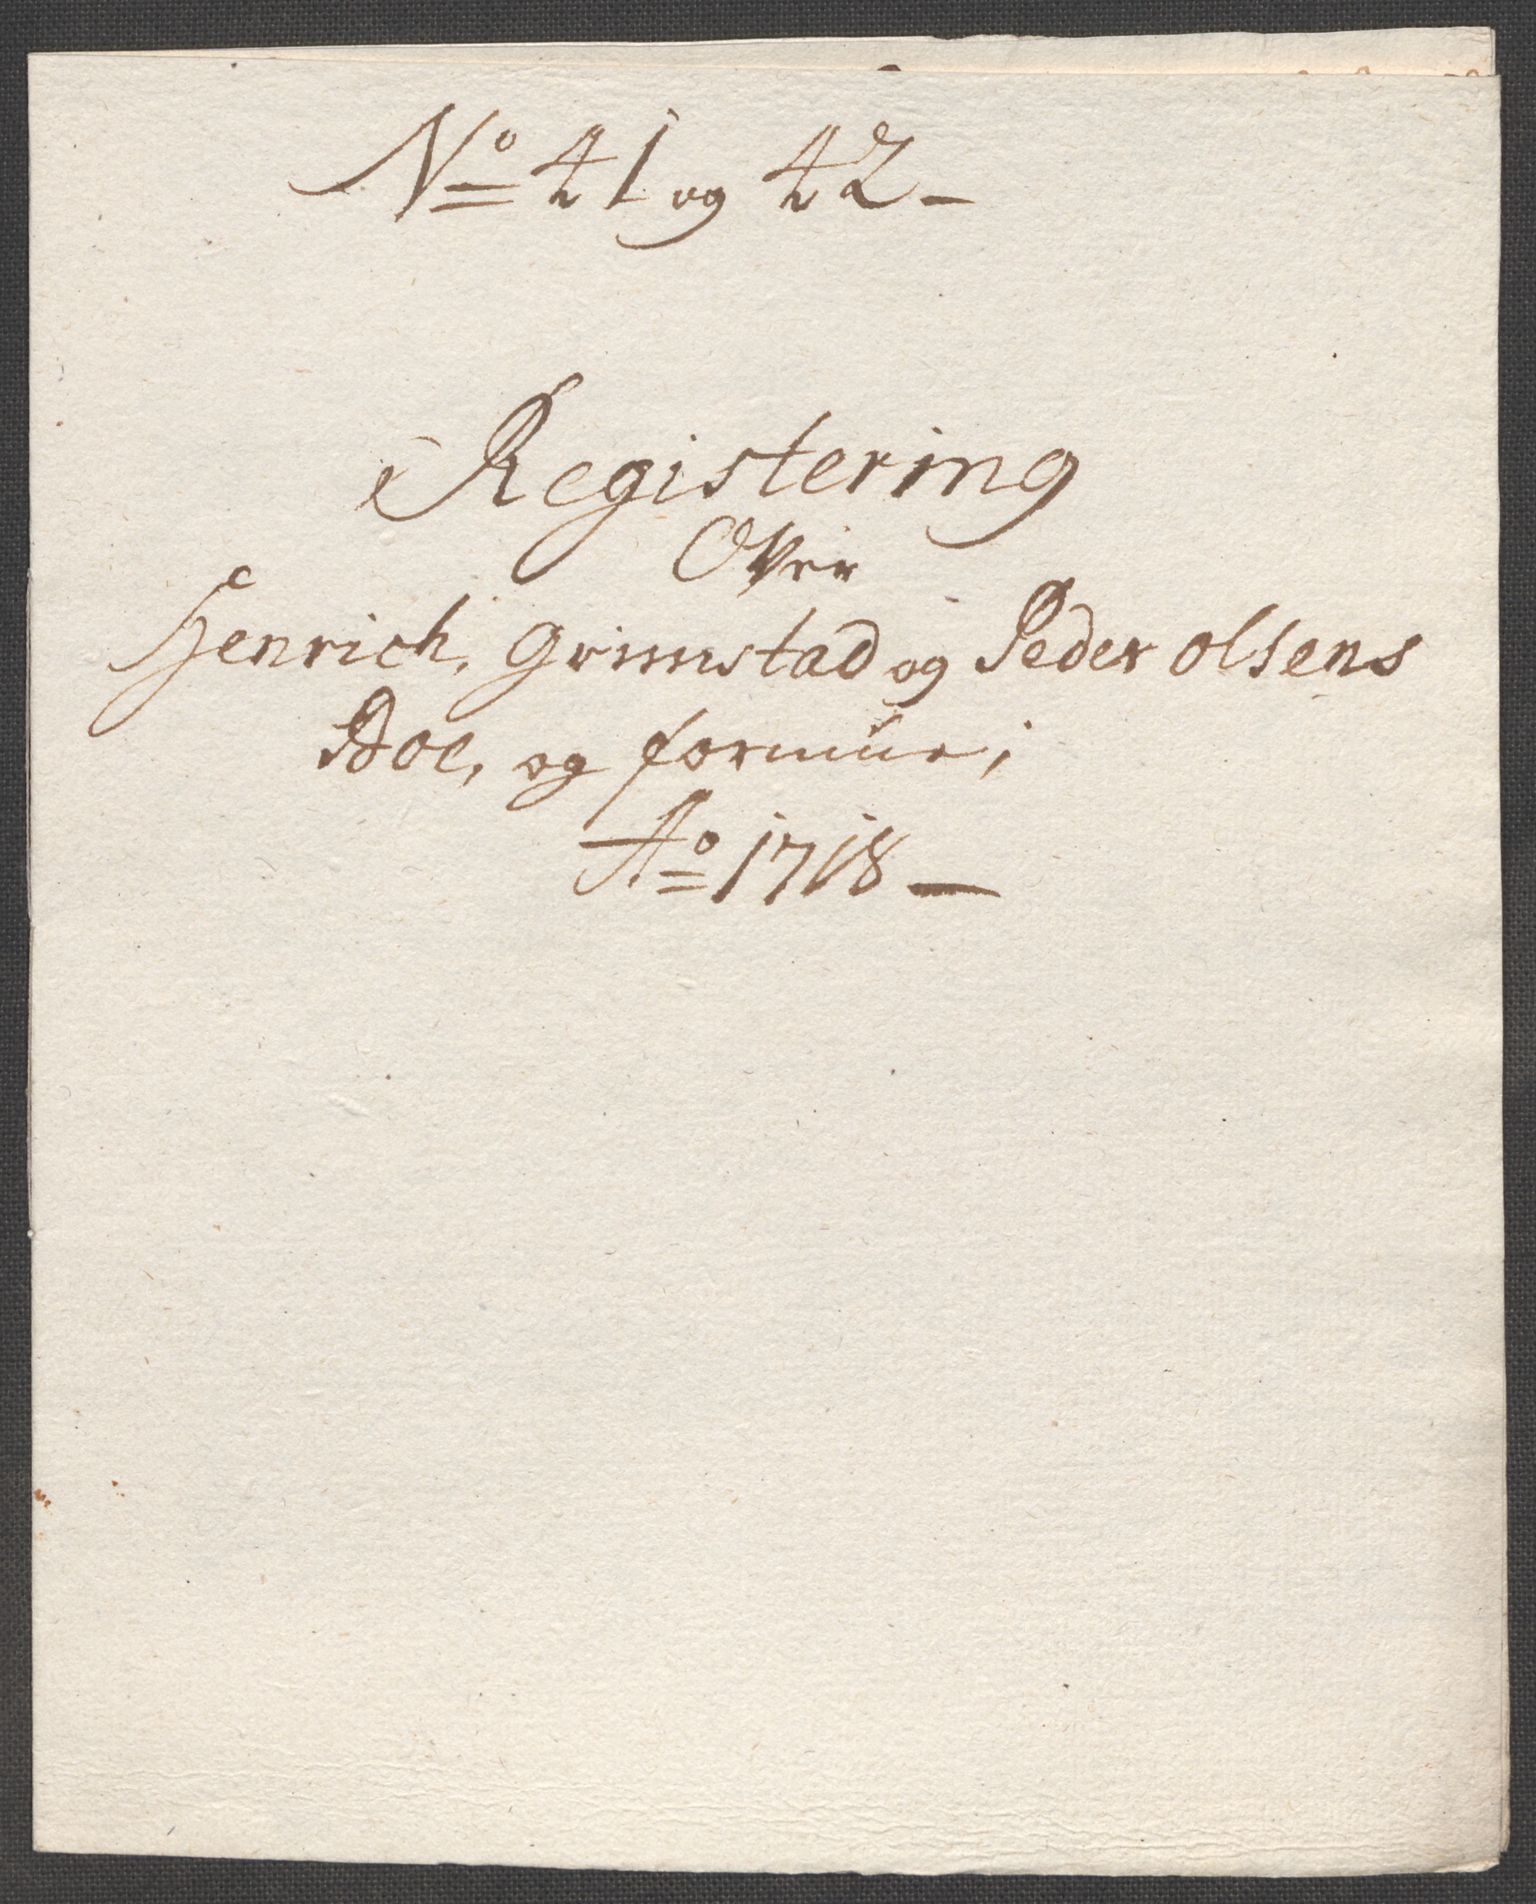 No 41 og 42 -
Registering
Over
Henrich, Grimstad og Peder olsens
Boe, og formüe;
Ao 1718 —